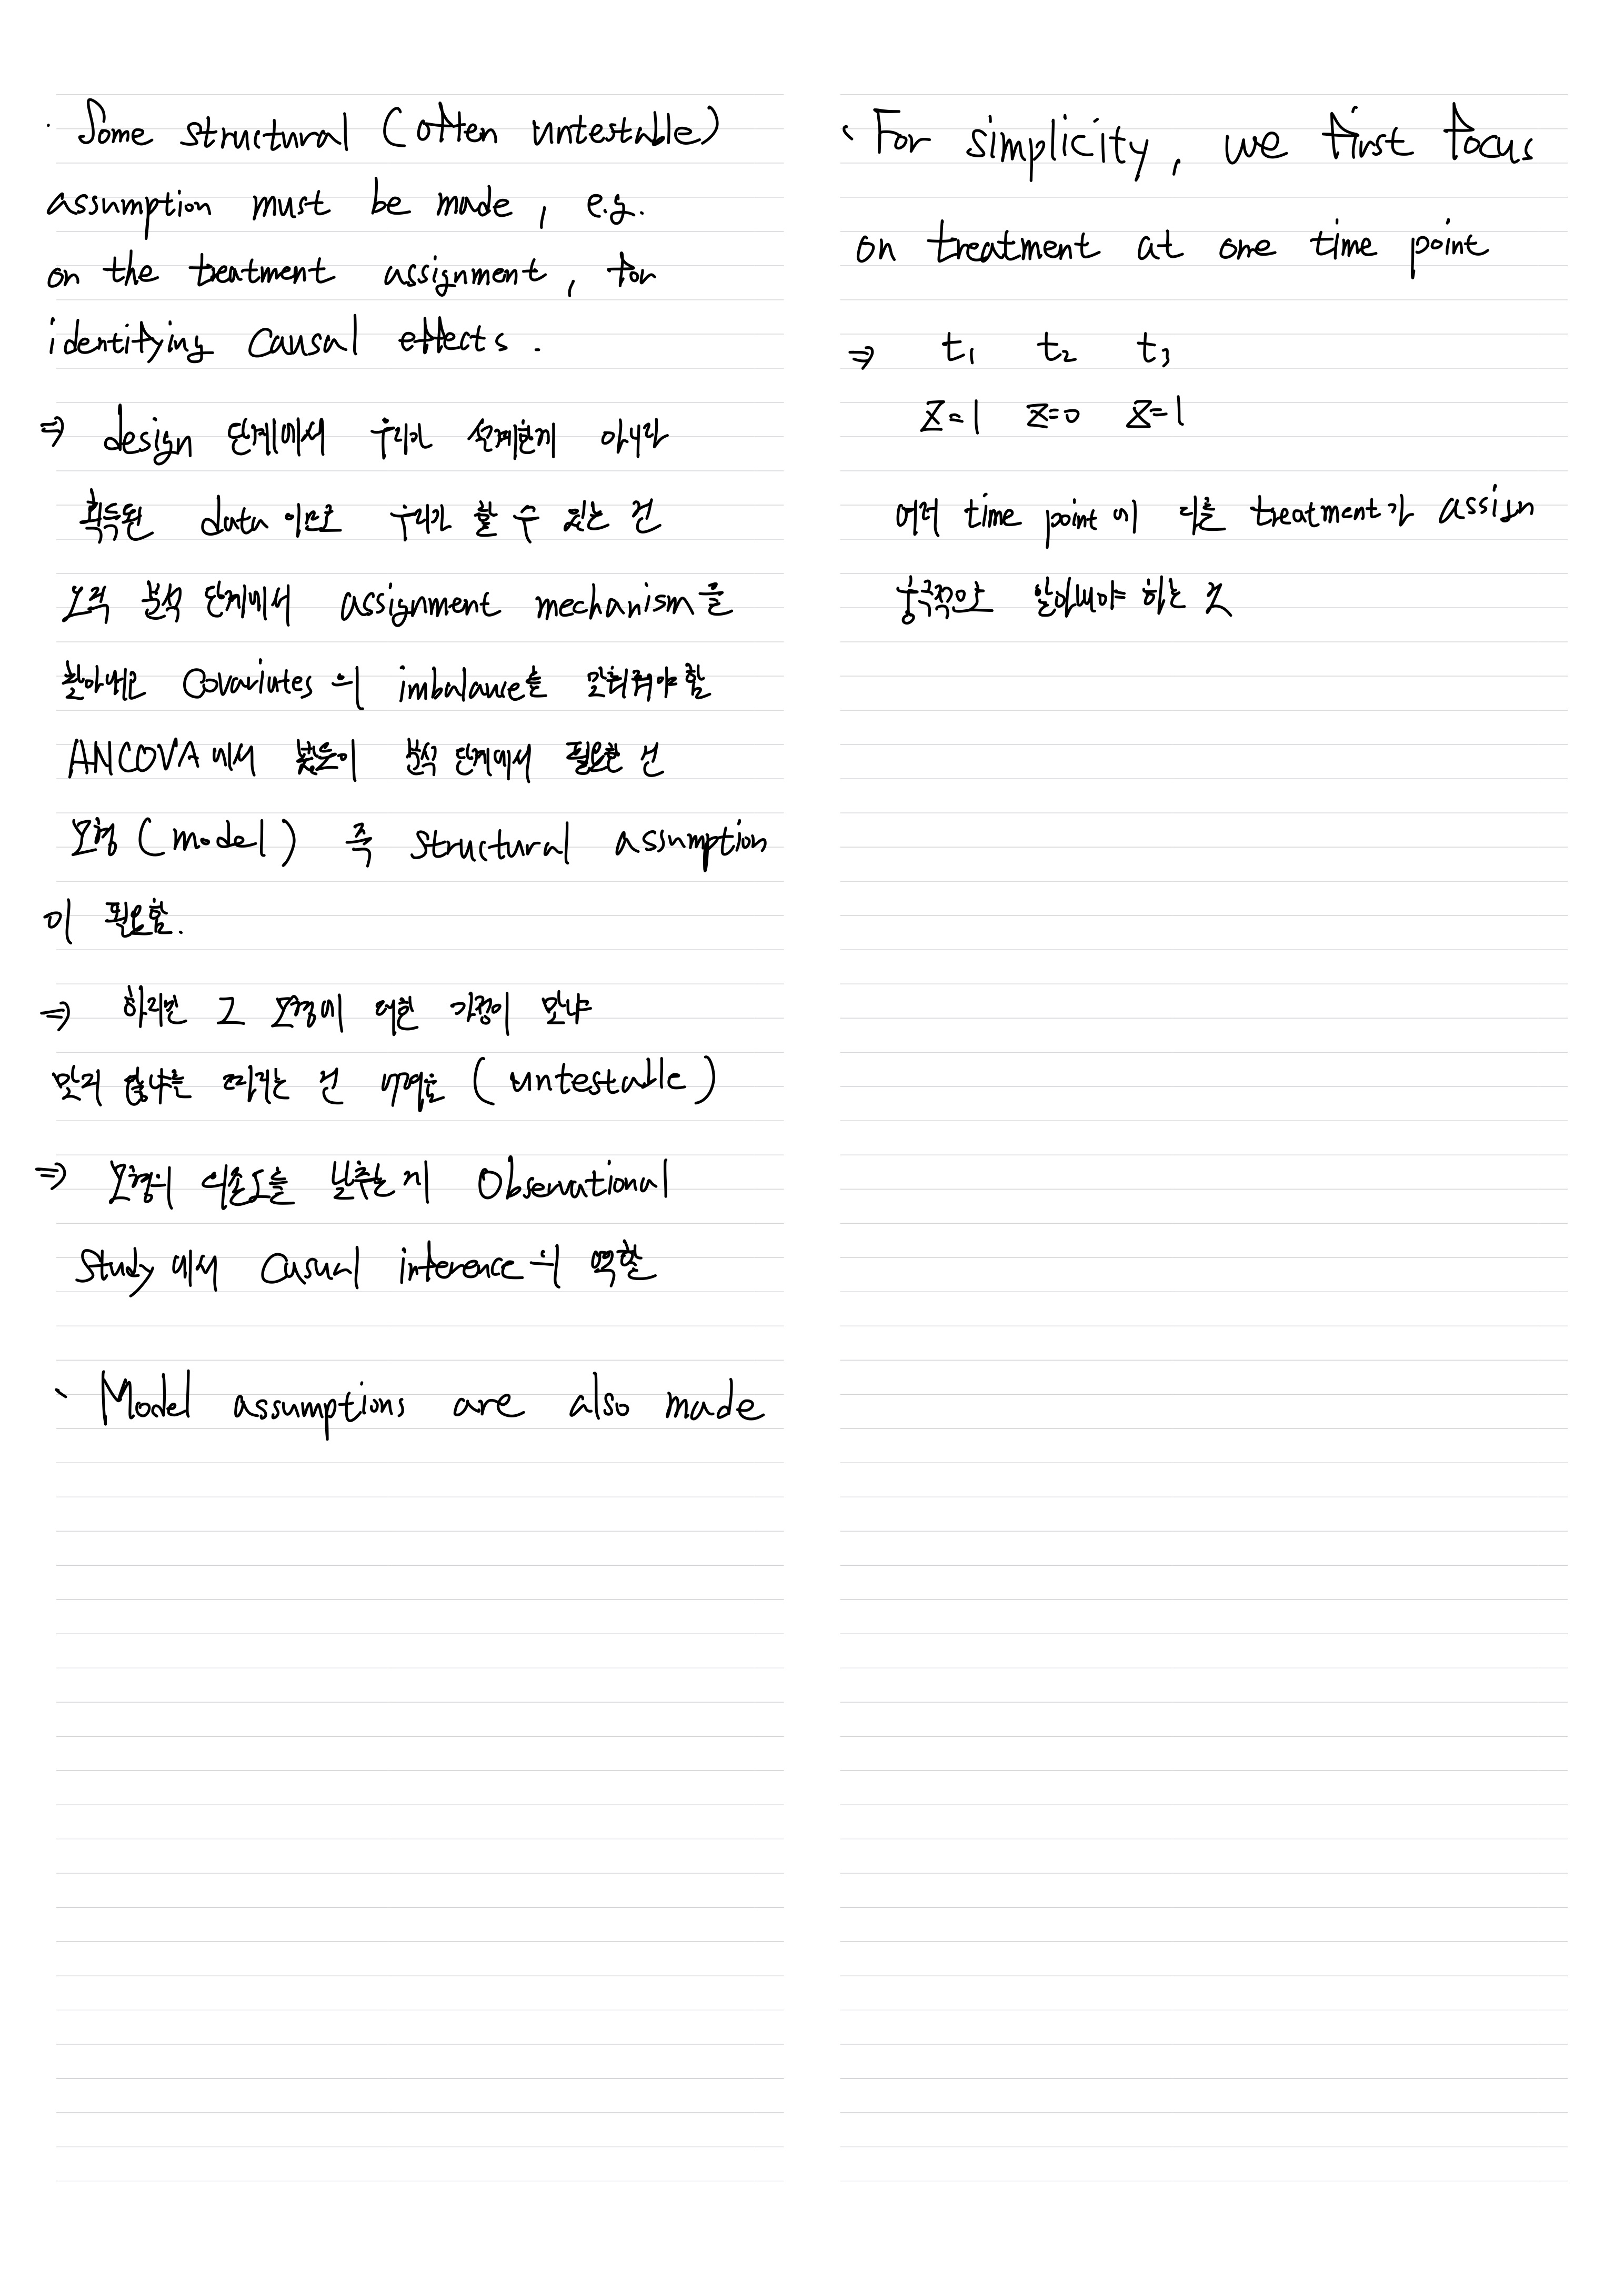 · Some structural (often untestable)
assumption must be made, e.g.
on the treatment assignment, for
identifying causal effects.
⇒ design 단계에서 우리가 설계한게 아니라
획득된 data 이므로 우리가 할 수 있는 건
오직 분석 단계에서 assignment mechanism을
찾아내는 Covariates의 imbalance를 맞춰줘야 함
ANCOVA에서 봤듯이 분석 단계에서 필요한 건
모형 (model) 즉 structural assumption
이 필요함.
⇒ 하지만 그 모형에 대한 가정이 맞냐
맞지 않냐를 따지는 건 어려움 (untestable)
⇒ 모형의 의존도를 낮추는 게 Observational
Study에서 Casual inference의 역할
· Model assumptions are also made
· For simplicity, we first focus
on treatment at one time point
⇒ t₁ t₂ t₃
Z=1 Z=0 Z=1
여러 time point에 다른 treatment가 assign
궁극적으로 알아내야 하는 것